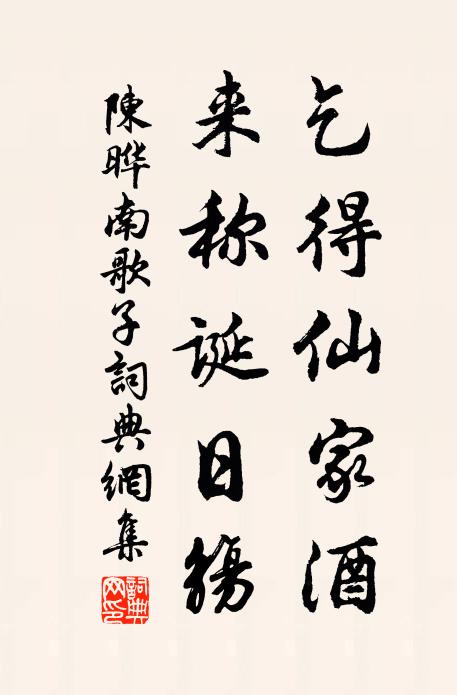 乞得仙家酒
来称诞日觞
陳晔南歌子詞典網集
詞典網印